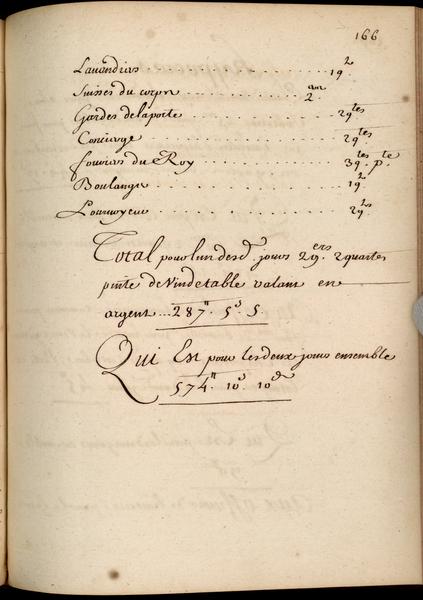 166
Lavandiers . . . . . . . . 1q.
Suisses du corps . . . . . . . . 2
Gardes de la porte . . . . . . . . 2q.tes
Concierge . . . . . . . . 2q.tes
fouriers du Roy . . . . . . . . 3q.tes pte
Boulanger . . . . . . . . 1q.
Pourvoyeur . . . . . . . . 2q.
Total pour l'un desd. jours 2 quartes
pinte de Vin de table valant en
argent . . . 287tt 5s 5.
Qui Est pour les deux jours ensemble
574tt 10s 10d